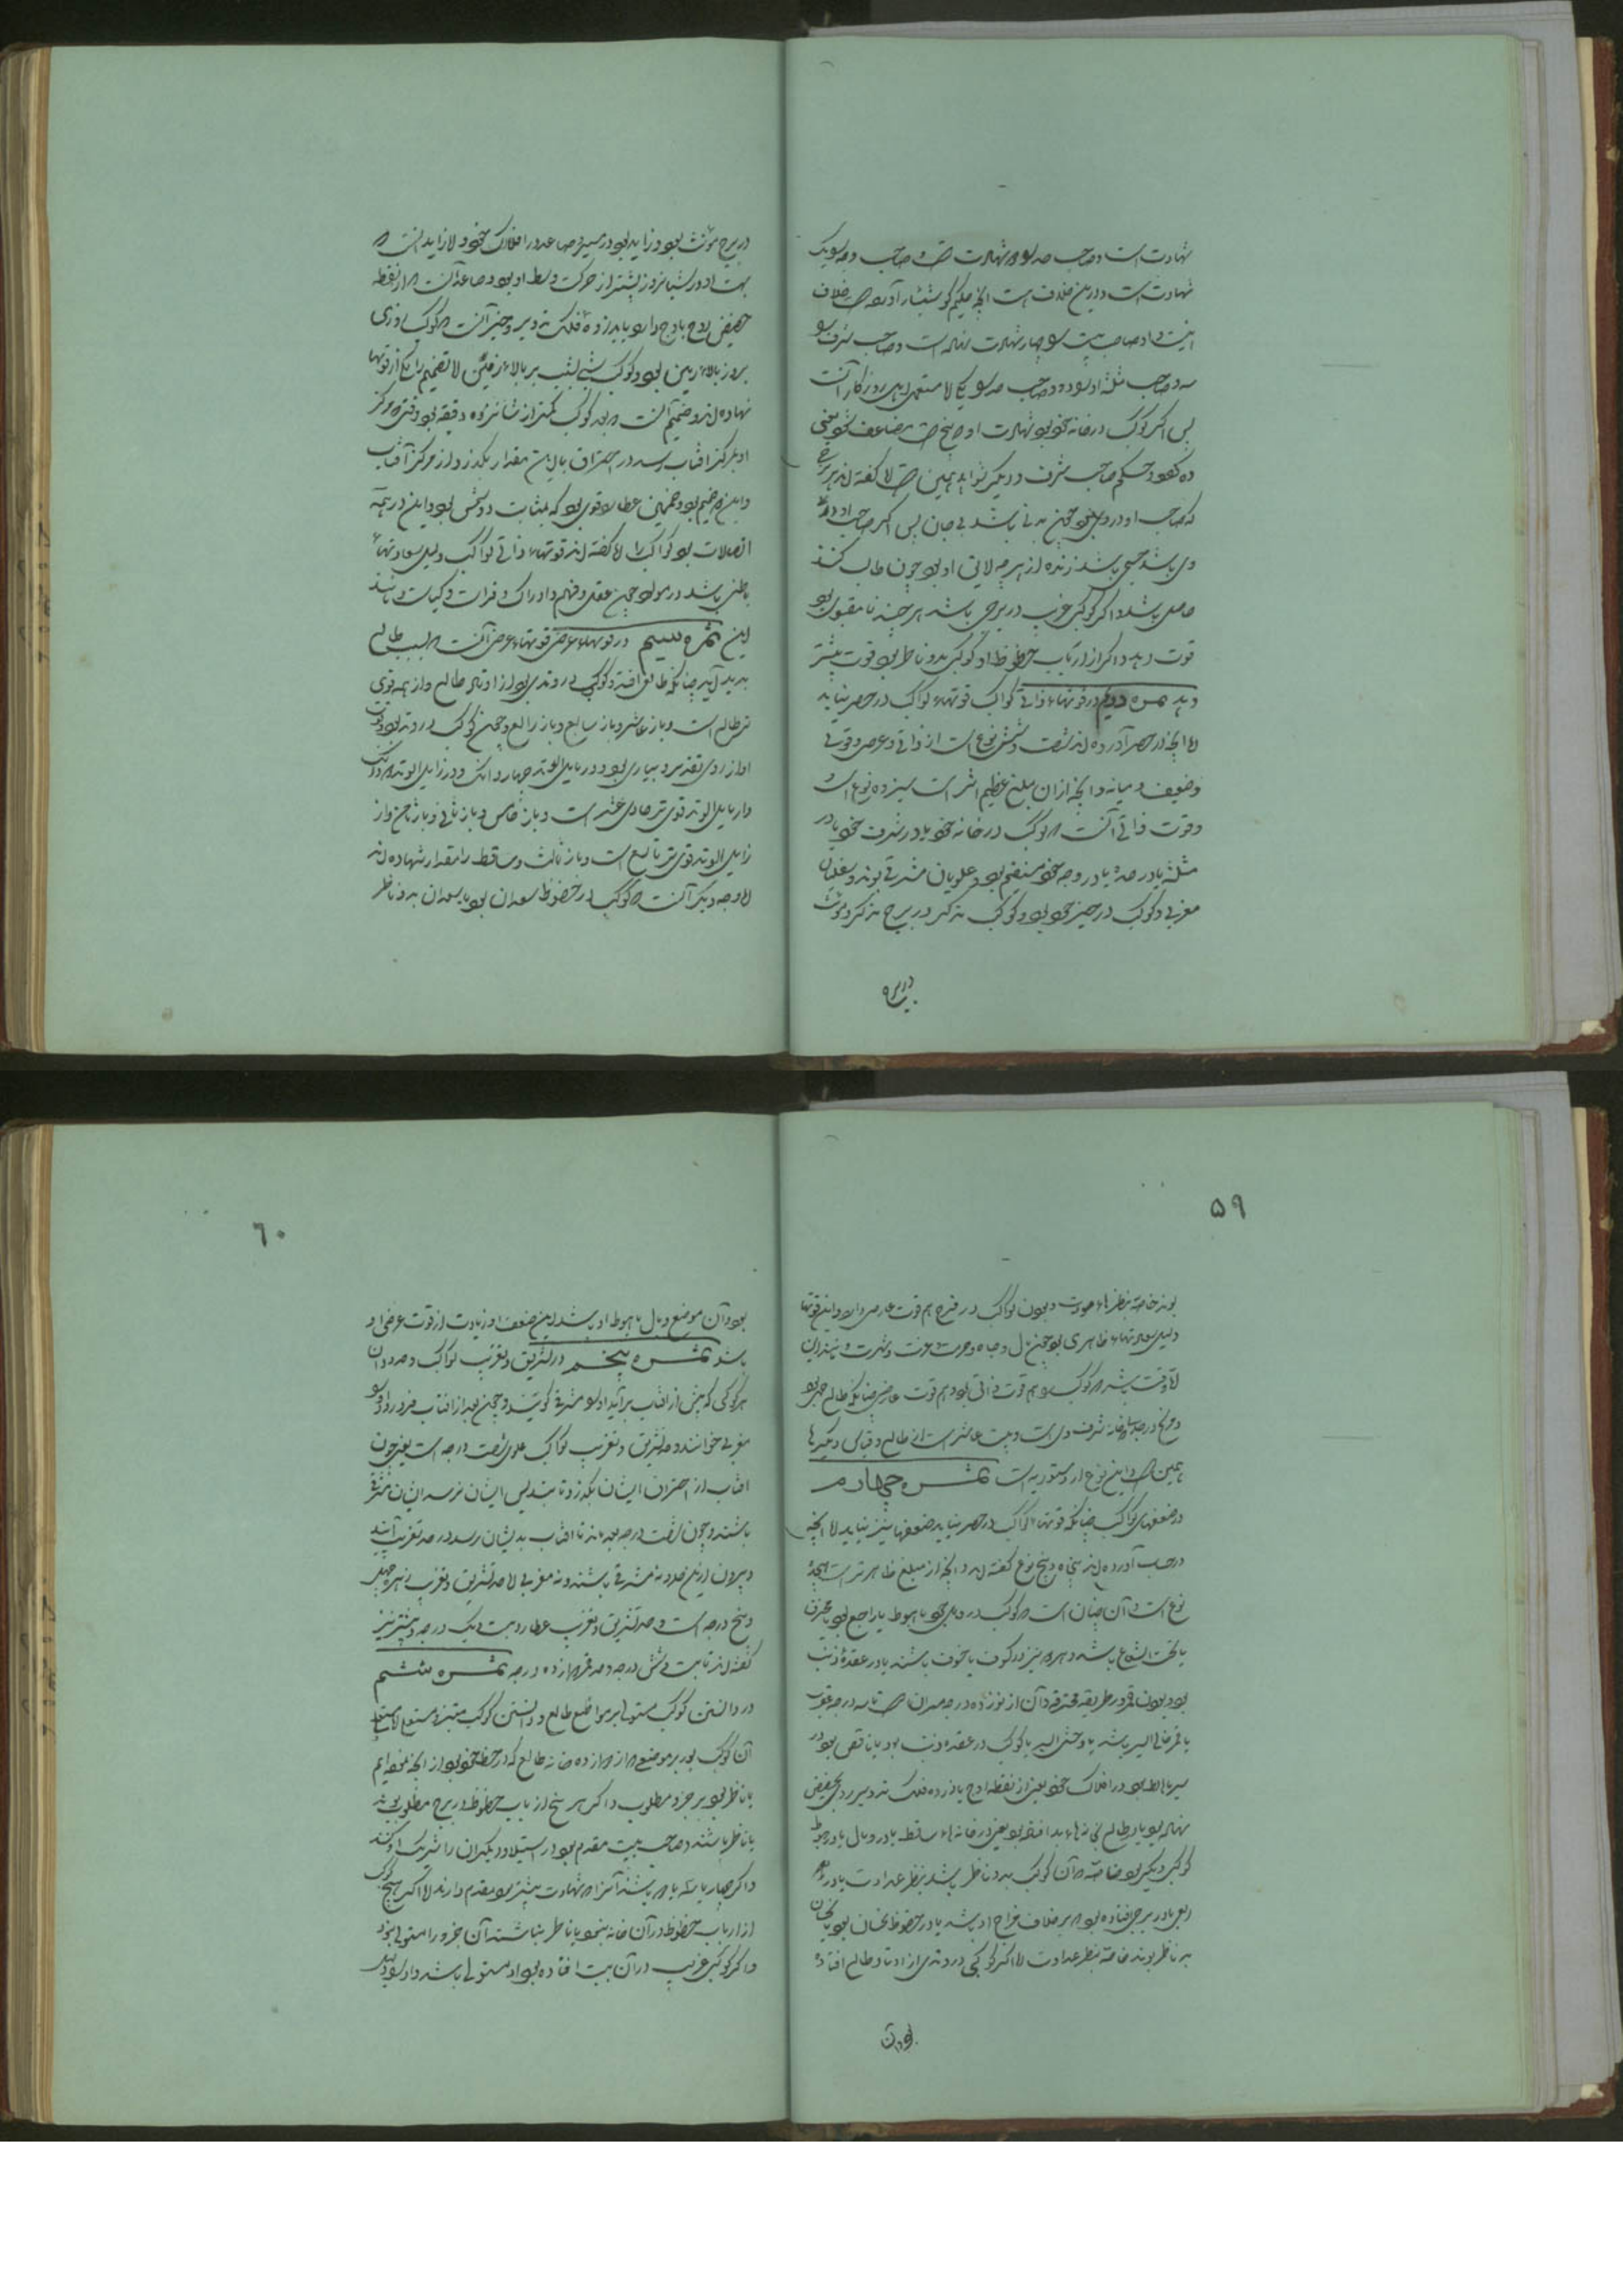 شهادت است و صاحب حد را دو شهادت است و صاحب وجه را یک
شهادت است و درین خلاف است آنچه حکیم کوشیار آورده است خلاف
اینست و او صاحب بیت را چهار شهادت نهاده است و صاحب شرف را
سه و صاحب مثلثه او را دو و صاحب حد را یکی اما مستعمل اهل روزگار آنست
پس اگر کوکب در خانه خود بود شهادت او پنج است مضاعف شود یعنی
ده شود و حکم صاحب شرف و دیگر شواهد همین است اما گفته اند هر برج
که صاحب او درو نبود چون بدنی باشد بی جان پس اگر صاحب او درو
وی باشد حی باشد زنده از هر چه لایق او بود چون طالب کنند
حاصل باشد و اگر کوکبی غریب در برجی باشد هر چند نامقبول بود
قوت دهد و اگر از ارباب حظوظ او کوکبی بدو ناظر بود قوت بیشتر
دهد ثمره دویم در قوتهاء ذاتی کواکب قوتهاء کواکب در حصر نیاید
اما آنچه در حصر آورده اند شصت و شش نوع است از ذاتی و عرضی و قوی
و ضعیف و میانه و آنچه ازان مبلغ عظیم اثر است سیزده نوع است
و قوت ذاتی آنست که کوکب در خانه خود یا در شرف خود یا در
مثلثه یا در حد یا در وجه خود مستقیم بود و علویان مشرقی بوند و سفلیان
مغربی و کوکب در حیز خود بود و کوکب مذکر در برج مذکر و مونث
در برج
در برج مؤنث بود و زاید بود در سیر و صاعد در افلاک خود اما زاید آنست که
بهت او در شبانروز بیشتر از حرکت وسط او بود و صاعد آنست که از نقطه
حضیض روی باوج دارد یا بذروه فلک تدویر و حیز آنست که کوکب روزی
بروز بالاء زمین بود و کوکب شبی بشب بر بالاء زمین اما تصمیم را یکی از قوتها
نهاده اند و صمیم آنست که بعد کوکب کمتر از شانزده دقیقه بود و قتی که مرکز
او بمرکز آفتاب رسد در احتراق یا این مقدار بگذرد از مرکز آفتاب
و این صمیم بود و همچنین عطا را قوی بود که بمثابت دوستی بود و این در همه
اتصالات بود کواکب را اما گفته اند قوتهاء ذاتی کواکب دلیل سعادتهاء
باطنی باشد در مولود چون عقل و فهم و ادراک و فراست و کیاست و مانند
این ثمره سیم در قوتهاء عرضی قوتهاء عرضی آنست که بسبب طالع
پدید آید چنانکه طالع افتد و کوکبی در وتدی بود از اوتاد طالع و از همه قوی
تر طالع است و باز عاشر و باز سابع و باز رابع و چون کوکب در وتد بود قوت
او از روی تقدیر دیناری بود و در مایل الوتد چهار دانگ و در زایل الوتد دو دانگ
و از مایل الوتد قوی تر حادی عشر است و باز خامس و باز ثانی و باز ثامن و از
زایل الوتد قوی تر تاسع است و باز ثالث و ساقط را مقدار ننهاده اند
اما وجه دیگر آنست که کوکب در حظوظ سعدان بود یا سعدان بدو ناظر
۵۹
بوند خاصه بنظرهاء مودت و بودن کواکب در فرح هم قوت عارضی دارد و این قوتها
دلیل سعادتهاء ظاهری بود چون مال و جاه و حرمت و عزت و شهرت و مانند این
اما وقت باشد که کوکب را هم قوت ذاتی بود و هم قوت عارضی چنانکه طالع حمل بود
و مریخ در جدی که خانه شرف وی است و بیت عاشر است از طالع و قیاس دیگرها
همین است و این نوع از دستوریه است ثمره چهارم
در ضعفهای کواکب چنانکه قوتهاء کواکب در حصر نیاید ضعفها نیز نیاید اما آنچه
در حساب آورده اند پنجاه و پنج نوع گفته اند و آنچه از مبلغ ظاهرتر است هجده
نوع است و آن چنان است که کوکب در وبال خود یا هبوط یا راجع بود یا محترق
یا تحت الشعاع باشد و هر دو نیر در کسوف یا خسوف باشند یا در عقده ذنب
بود و بودن قمر در طریقه محترقه و آن از نوزده درجه میزان است تا سه درجه عقرب
یا قمر خالی السیر باشد یا وحشی السیر یا کوکب در عقده ذنب بود یا ناقص بود در
سیر یا هابط بود در افلاک خود یعنی از نقطه اوج یا ذروه فلک تدویر روی بحضیض
نهاده بود یا در طالع بخانهاء بد افتاده بود یعنی در خانهاء ساقط یا در وبال یا در هبوط
کوکبی دیگر بود خاصه که آن کوکب بدو ناظر باشد بنظر عداوت یا در
ربعی یا در برجی افتاده بود که بر خلاف مزاج او باشد یا در حظوظ نحسان بود یا نحسان
بدو ناظر بوند خاصه بنظر عداوت اما اگر کوکبی در وتدی از اوتاد طالع افتاده
بود و آن
۶۰
بود و آن موضع وبال یا هبوط او باشد این ضعف او زیادت از قوت عرضی او
باشد ثمره پنجم در تشریق و تغریب کواکب و حدود آن
هر کوکبی که پیش از آفتاب برآید او را مشرقی گویند و چون بعد از آفتاب فرو رود او را
مغربی خوانند و حد تشریق و تغریب کواکب علوی شصت درجه است یعنی چون
آفتاب از احتراق ایشان بگذرد تا بتسدیس ایشان نرسد ایشان مشرقی
باشند و چون شصت درجه بعد ماند تا آفتاب بدیشان رسد در حد تغریب آیند
و بیرون ازین حدود نه مشرقی باشند و نه مغربی اما حد تشریق و تغریب زهره چهل
و پنج درجه است و حد تشریق و تغریب عطارد بیست و یک درجه و بیشتر نیز
گفته اند تا بیست و شش درجه و حد قمر دوازده درجه ثمره ششم
در دانستن کوکب مستولی بر مواضع طالع و دانستن کوکب مبتز و مستعلی اما مستولی
آن کوکب بود بر موضعی که از دوازده خانه طالع که در حظ خود بود از آنچه گفته ایم
یا ناظر بود بر جزو مطلوب و اگر هر پنج ارباب حظوظ در برج مطلوب بوند
یا ناظر باشند صاحب بیت مقدم بود در استیلا و دیگران را شریک او کنند
و اگر چهار یا سه یا دو باشند آنرا که شهادت بیشتر بود مقدم دارند اما اگر هیچ کوکب
از ارباب حظوظ در آن خانه نبود یا ناظر نباشند آن جزو را مستولی نبود
و اگر کوکبی غریب در آن بیت افتاده بود او مستولی باشد و او را بود